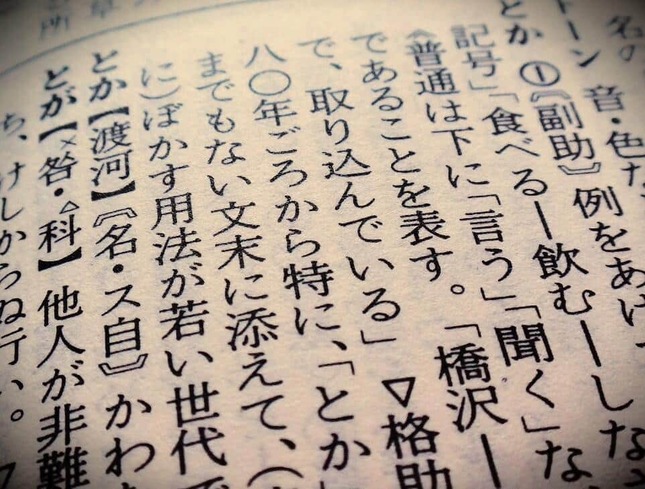 名の
トーン 音・色
とか ①〘副助〙例をあげ
記号」「食べる―飲む―しな
《普通は下に「言う」「聞く」な
であることを表す。「橋沢―
で、取り込んでいる」▽格助
八〇年ごろから特に、「とか」
までもない文末に添えて、(
に)ぼかす用法が若い世代で
とか【渡河】〘名・ス自〙かわ
とが【×咎・△科】他人が非難
ち、けしからぬ行い。
所